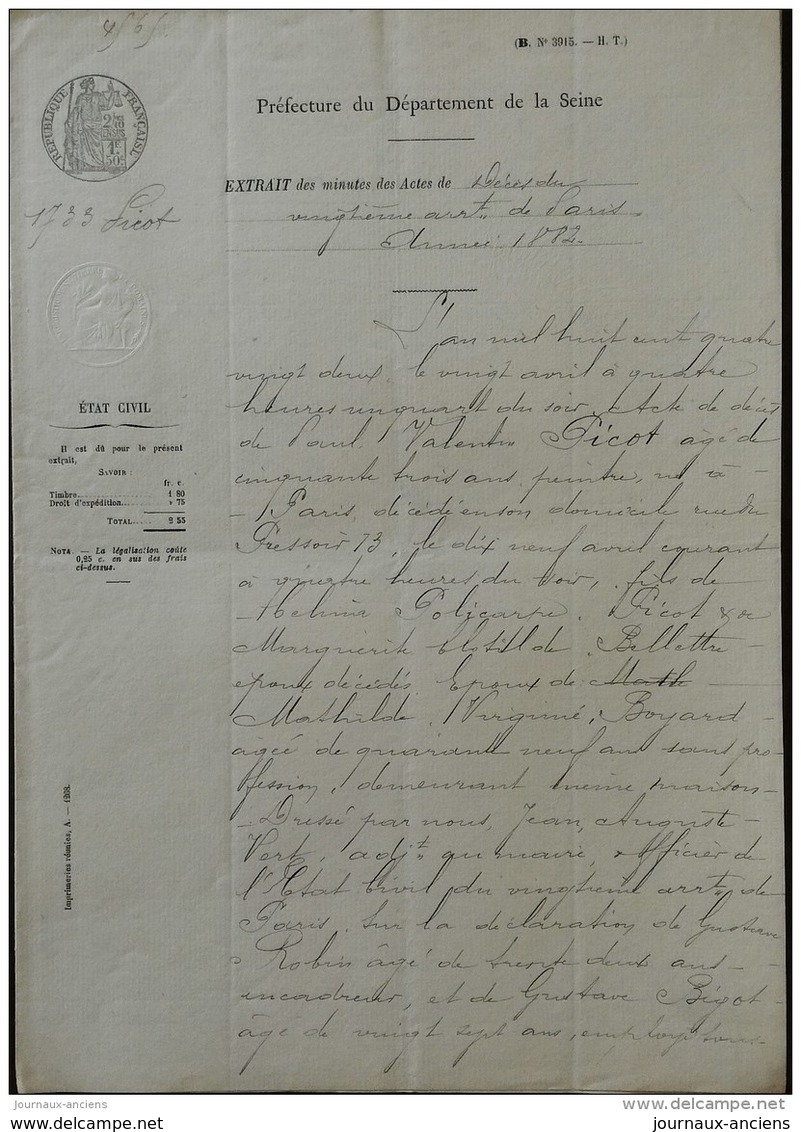 4565
(B. Nº 3915. — H. T.)
RÉPUBLIQUE FRANÇAISE
2/10 EN SUS
1F 50c
Préfecture du Département de la Seine
EXTRAIT des minutes des Actes de Décès du
vingtième arrt. de Paris.
Année 1882.
1733 Picot
ÉTAT CIVIL
Il est dû pour le présent
extrait,
SAVOIR :
fr. c.
Timbre............ 1 80
Droit d'expédition..... » 75
TOTAL..... 2 55
NOTA. — La légalisation coûte
0,25 c. en sus des frais
ci-dessus.
Imprimeries réunies, A. — 1208.
L'an mil huit cent quatre
vingt deux, le vingt avril à quatre
heures un quart du soir, Acte de décès
de Paul, Valentin Picot âgé de
cinquante trois ans, peintre, né à
Paris, décédé en son domicile rue du
Pressoir 13, le dix neuf avril courant
à heures du soir, fils de
Policarpe, Picot & de
Marguerite Clotilde, Bellettre
époux décédés, Epoux de Math
Mathilde, Virginie, Boyard
âgée de quarante neuf ans sans pro-
fession, demeurant même maison
Dressé par nous, Jean, Auguste
Vert, adjt. au maire, officier de
l'Etat Civil du vingtième arrt. de
Paris, sur la déclaration de Gustave
Robin âgé de trente deux ans
encadreur, et de Gustave Bigot
âgé de vingt sept ans, employé tous
journaux-anciens
delcampe.net
journaux-anciens
journaux-anciens